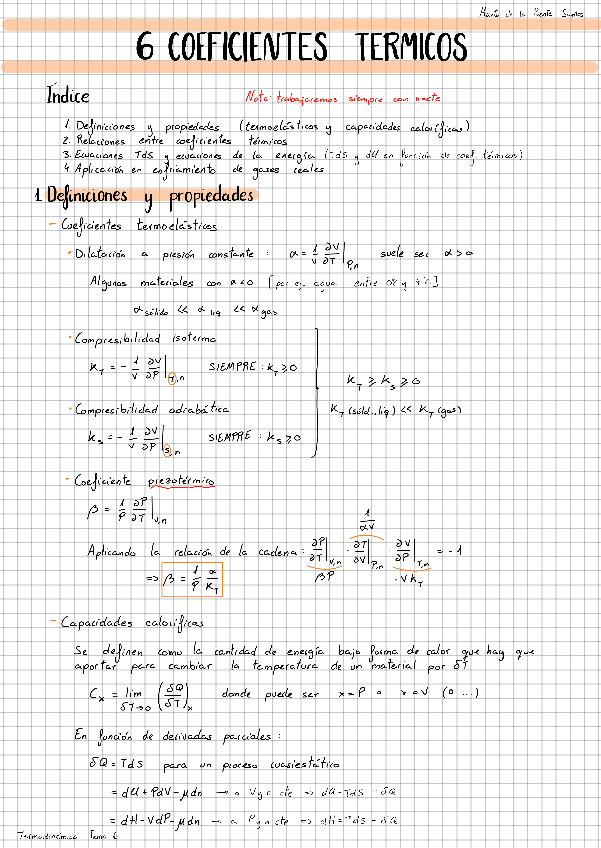 María de la Puente Santos
6 COEFICIENTES TERMICOS
Índice
Nota: trabajaremos siempre con n=cte
1. Definiciones y propiedades (termoelásticos y capacidades caloríficas)
2. Relaciones entre coeficientes térmicos
3. Ecuaciones TdS y ecuaciones de la energía (TdS y dU en función de coef. térmicos)
4. Aplicación en enfriamiento de gases reales
1. Definiciones y propiedades
- Coeficientes termoelásticos
• Dilatación a presión constante : α = 1/V ∂V/∂T |P,n suele ser α > 0
Algunos materiales con α < 0 [por ej. agua entre 0°C y 4°C]
α sólido << α liq << α gas
• Compresibilidad isoterma
K_T = - 1/V ∂V/∂P |T,n SIEMPRE : K_T ⩾ 0
K_T ⩾ K_S ⩾ 0
• Compresibilidad adiabática
K_T (sólid., liq) << K_T (gas)
K_S = - 1/V ∂V/∂P |S,n SIEMPRE : K_S ⩾ 0
• Coeficiente piezotérmico
β = 1/P ∂P/∂T |V,n
1/αV
Aplicando la relación de la cadena : ∂P/∂T |V,n · ∂T/∂V |P,n · ∂V/∂P |T,n = -1
βP -VK_T
⇒ β = 1/P α/K_T
- Capacidades caloríficas
Se definen como la cantidad de energía bajo forma de calor que hay que
aportar para cambiar la temperatura de un material por δT
C_x = lim δT→0 (δQ/δT)_x donde puede ser x=P o x=V (o ...)
En función de derivadas parciales :
δQ = TdS para un proceso cuasiestático
= dU + PdV - μdn → a V y n cte → dU = TdS = δQ
= dH - VdP - μdn → a P y n cte → dH = TdS = δQ
Termodinámica Tema 6